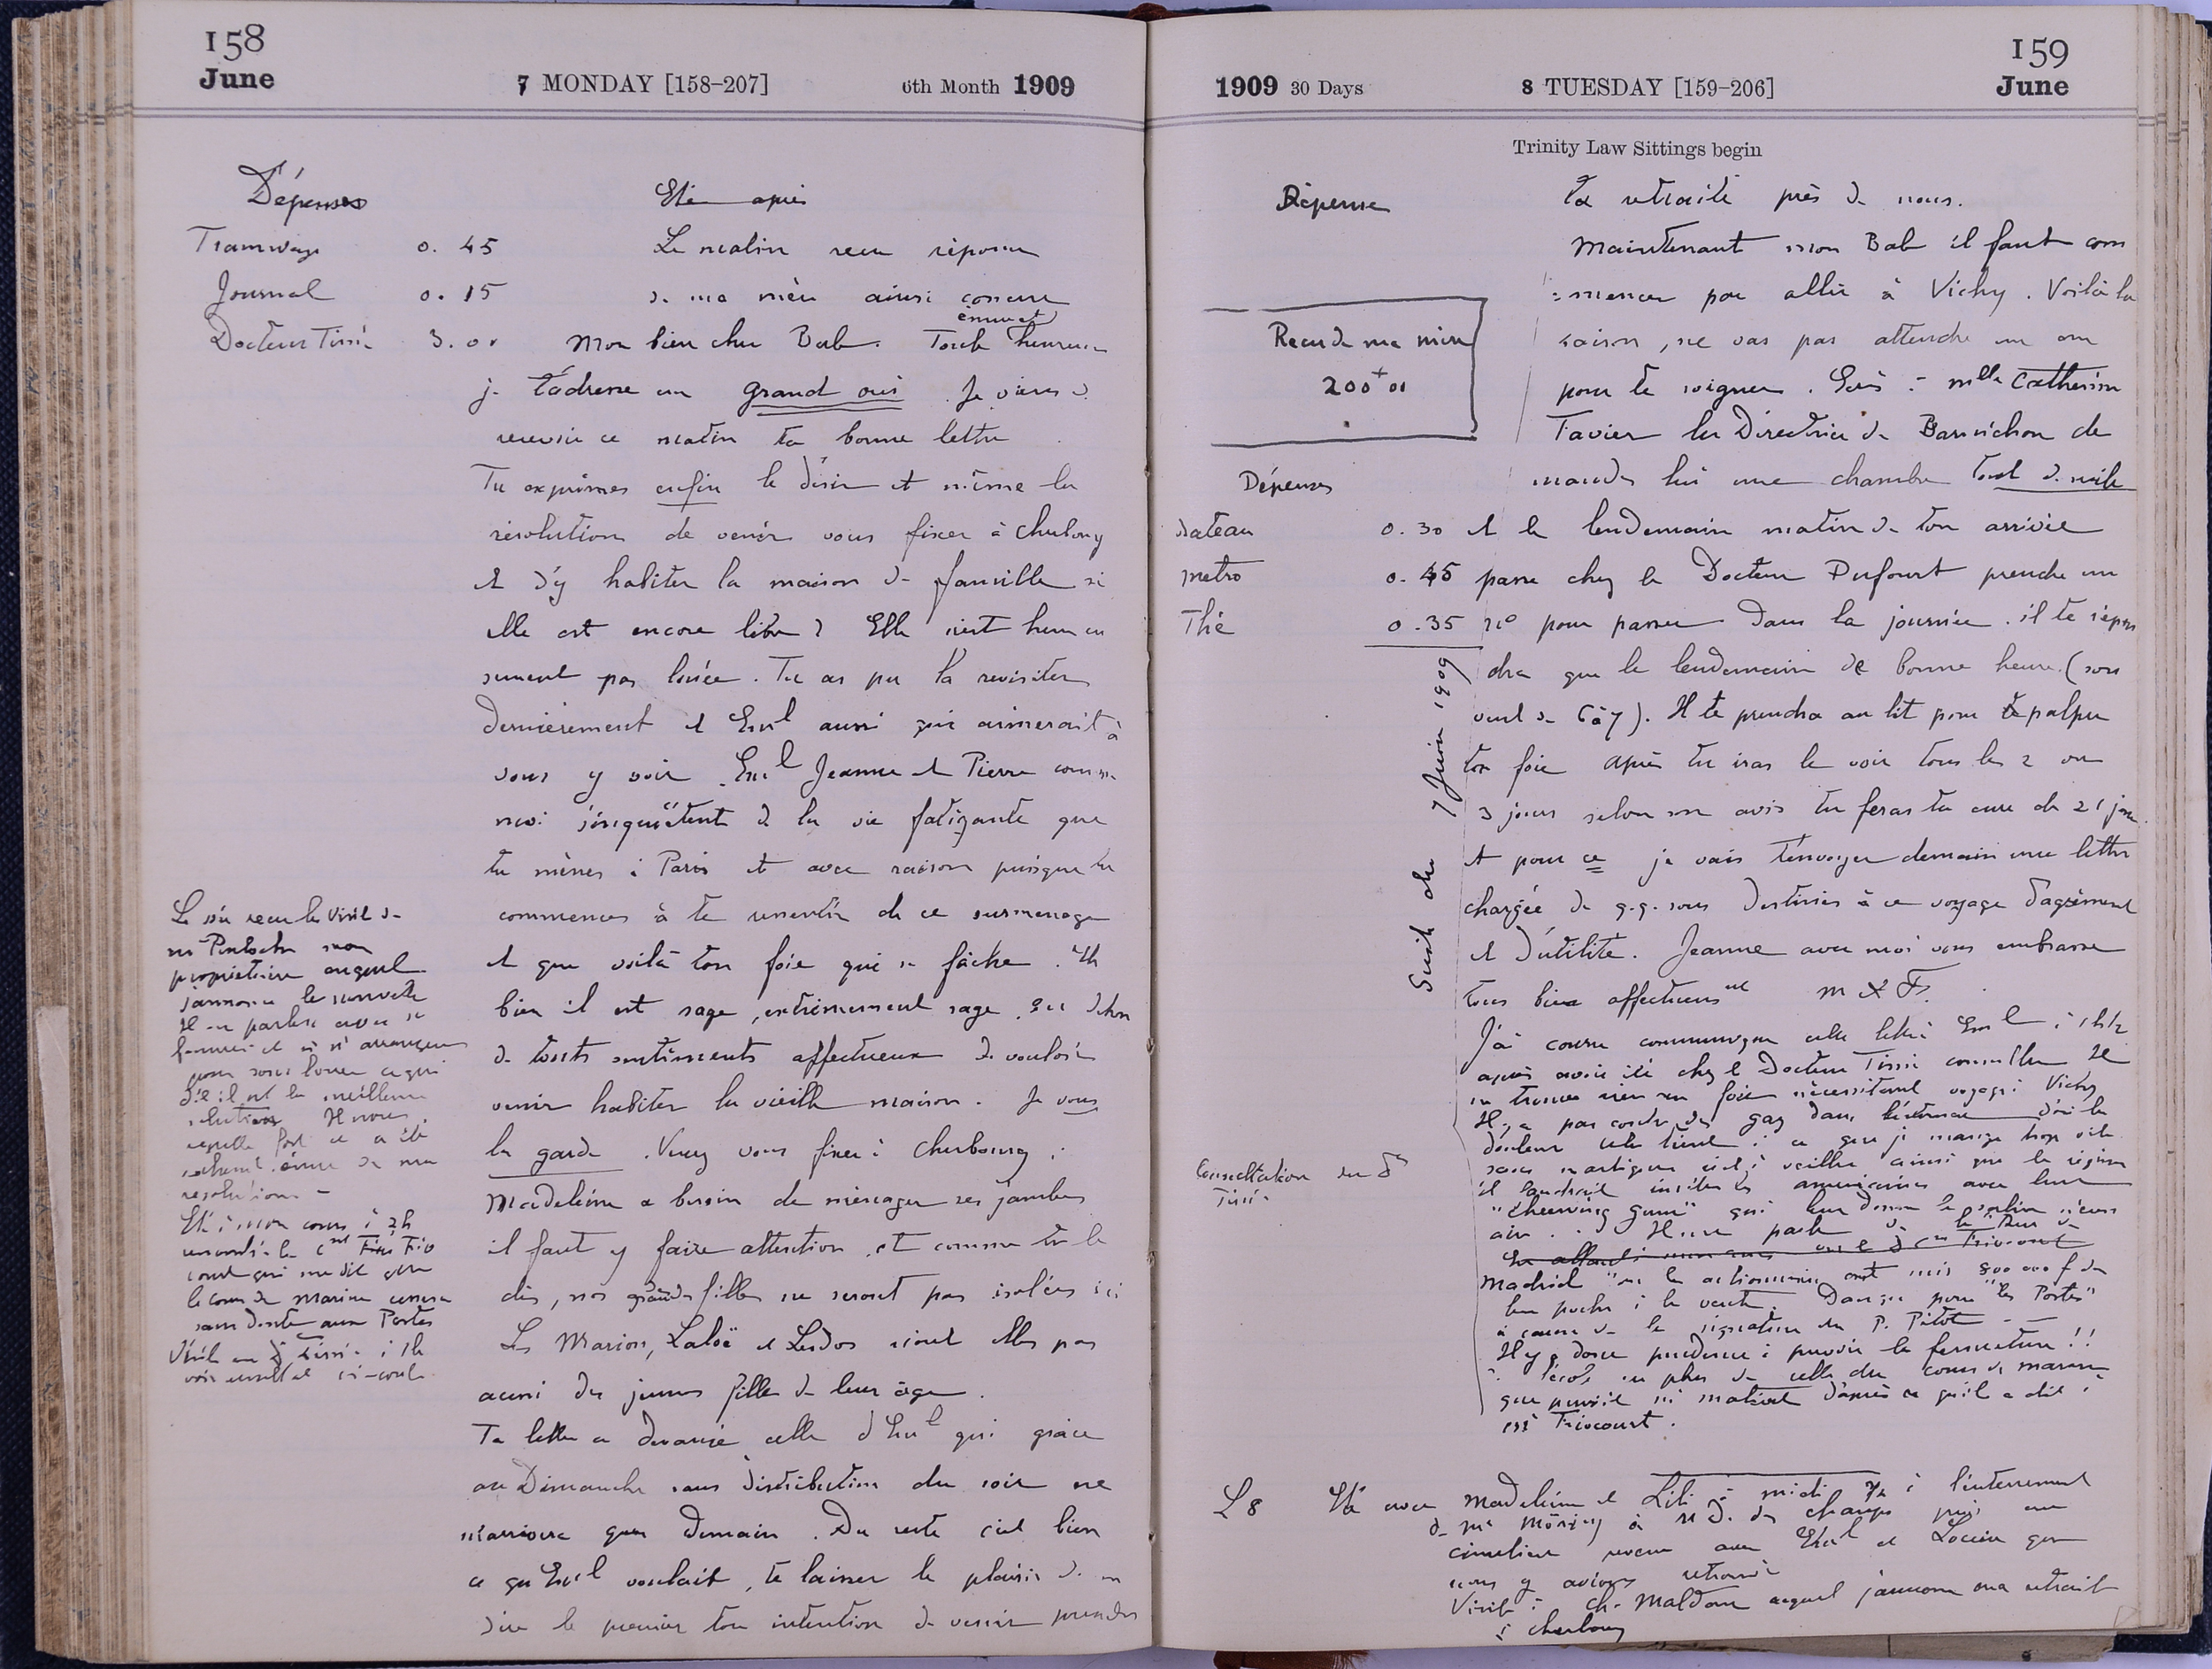 158
June
7 MONDAY [158–207]
6th Month 1909
Dépenses
Tramways 0. 45
Journal 0. 15
Docteur Tissié 3. 00
Le matin reçu réponse
de ma mère ainsi conçue
Mon bien cher Bab. Toute heureuse
émue et
je t'adresse un grand oui. Je viens de
recevoir ce matin ta bonne lettre
Tu exprimes enfin le désir et même la
résolution de venir vous fixer à Cherbourg
et d'y habiter la maison de famille si
elle est encore libre ? Elle n'est heureu
sement pas louée. Tu as pu la revisiter
dernièrement et Emel aussi qui aimerait à
vous y voir. Emel Jeanne et Pierre comme
moi s'inquiètent de la vie fatigante que
tu mènes à Paris et avec raison puisque tu
commences à te ressentir de ce surmenage
et que voilà ton foie qui se fâche. Eh
bien il est sage, extrêmement sage, en dehors
de touts sentiments affectueux de vouloir
venir habiter la vieille maison. Je vous
la garde. Venez vous fixer à Cherbourg ;
Madeleine a besoin de ménager ses jambes
il faut y faire attention, et comme tu le
dis, nos grandes filles ne seront pas isolées ici
Les Marion, Laloë et Ledos n'ont elles pas
aussi des jeunes filles de leur âge.
Ta lettre a devancé celle d'Emel qui grâce
au Dimanche sans distribution du soir ne
m'arrivera que demain. Du reste c'est bien
ce qu'Emel voulait, te laisser le plaisir de me
dire le premier ton intention de venir prendre
Le soir reçu la visite de
mon
propriétaire auquel
j'annonce la nouvelle
Il en parlera avec sa
femme et s'arrangera
pour sous louer ce qui
dit il est la meilleure
solution
résolution –
Été à mon cours à 2h
rencontré le Cnt Frio
court qui me dit que
le cours de Marine cessera
sans doute aux Postes
Visite au Dr Tissié à 1h
voir résultat ci-contre
159
June
1909 30 Days
8 TUESDAY [159–206]
Trinity Law Sittings begin
Dépense
Reçu de ma mère
200 00
Dépenses
Bateau 0. 30
Metro 0. 45
Thé 0. 35
Suite du 7 Juin 1909
ta retraite près de nous.
Maintenant mon Bab il faut com
mencer par aller à Vichy. Voilà la
saison, ne vas pas attendre un an
pour te soigner. Ecris à Mlle Catherine
Tavier la Directrice de Barnichon de
mande lui une chambre tout de suite
et le lendemain matin de ton arrivée
passe chez le Docteur Dufourt prendre un
no pour passer dans la journée. il te répon
dra que le lendemain de bonne heure (sou
vent de 6 à 7). Il te prendra au lit pour te palper
ton foie après tu iras le voir tous les 2 ou
3 jours selon son avis tu feras ta cure de 21 jours
et pour ce je vais t'envoyer demain une lettre
chargée de q.q. sous destinés à ce voyage d'agrément
et d'utilité. Jeanne avec moi vous embrasse
tous bien affectueusnt M X F.
J'ai couru communiquer cette lettre à Emel à 1h1/2
après avoir été chez le Docteur Tissié consulter Il
ne trouve rien au foie nécessitant voyage à Vichy
Il y a par contre des gaz dans l'estomac d'où la
douleur cela tient à ce que je mange trop vite
sans mastiquer c'est à veiller ainsi que le régime
il faudrait imiter les américaines avec leur
"Cheewing gum" qui leur donne la salive nécess
aire. Il me parle de
Consultation du Dr
Tissié
Madrid "où les actionnaires ont mis 800 000 f de
leur poche à la vente. Danger pour "les Postes"
à cause de la signature du P. Pitot – –
Il y a donc prudence à prévoir la fermeture !!
de l'école en plus de celle du cours de marine
que prévoit ce matin d'après ce qu'il a dit à
Friocourt.
Le 8 Été avec Madeleine et Lili à midi 3/4 à l'enterrement
de à N D. des Champs puis au
cimetière revenu avec Emel et Lucien que
nous y avions retrouvé
Visite à Ch. Maldan auquel j'annonce ma retraite
à Cherbourg